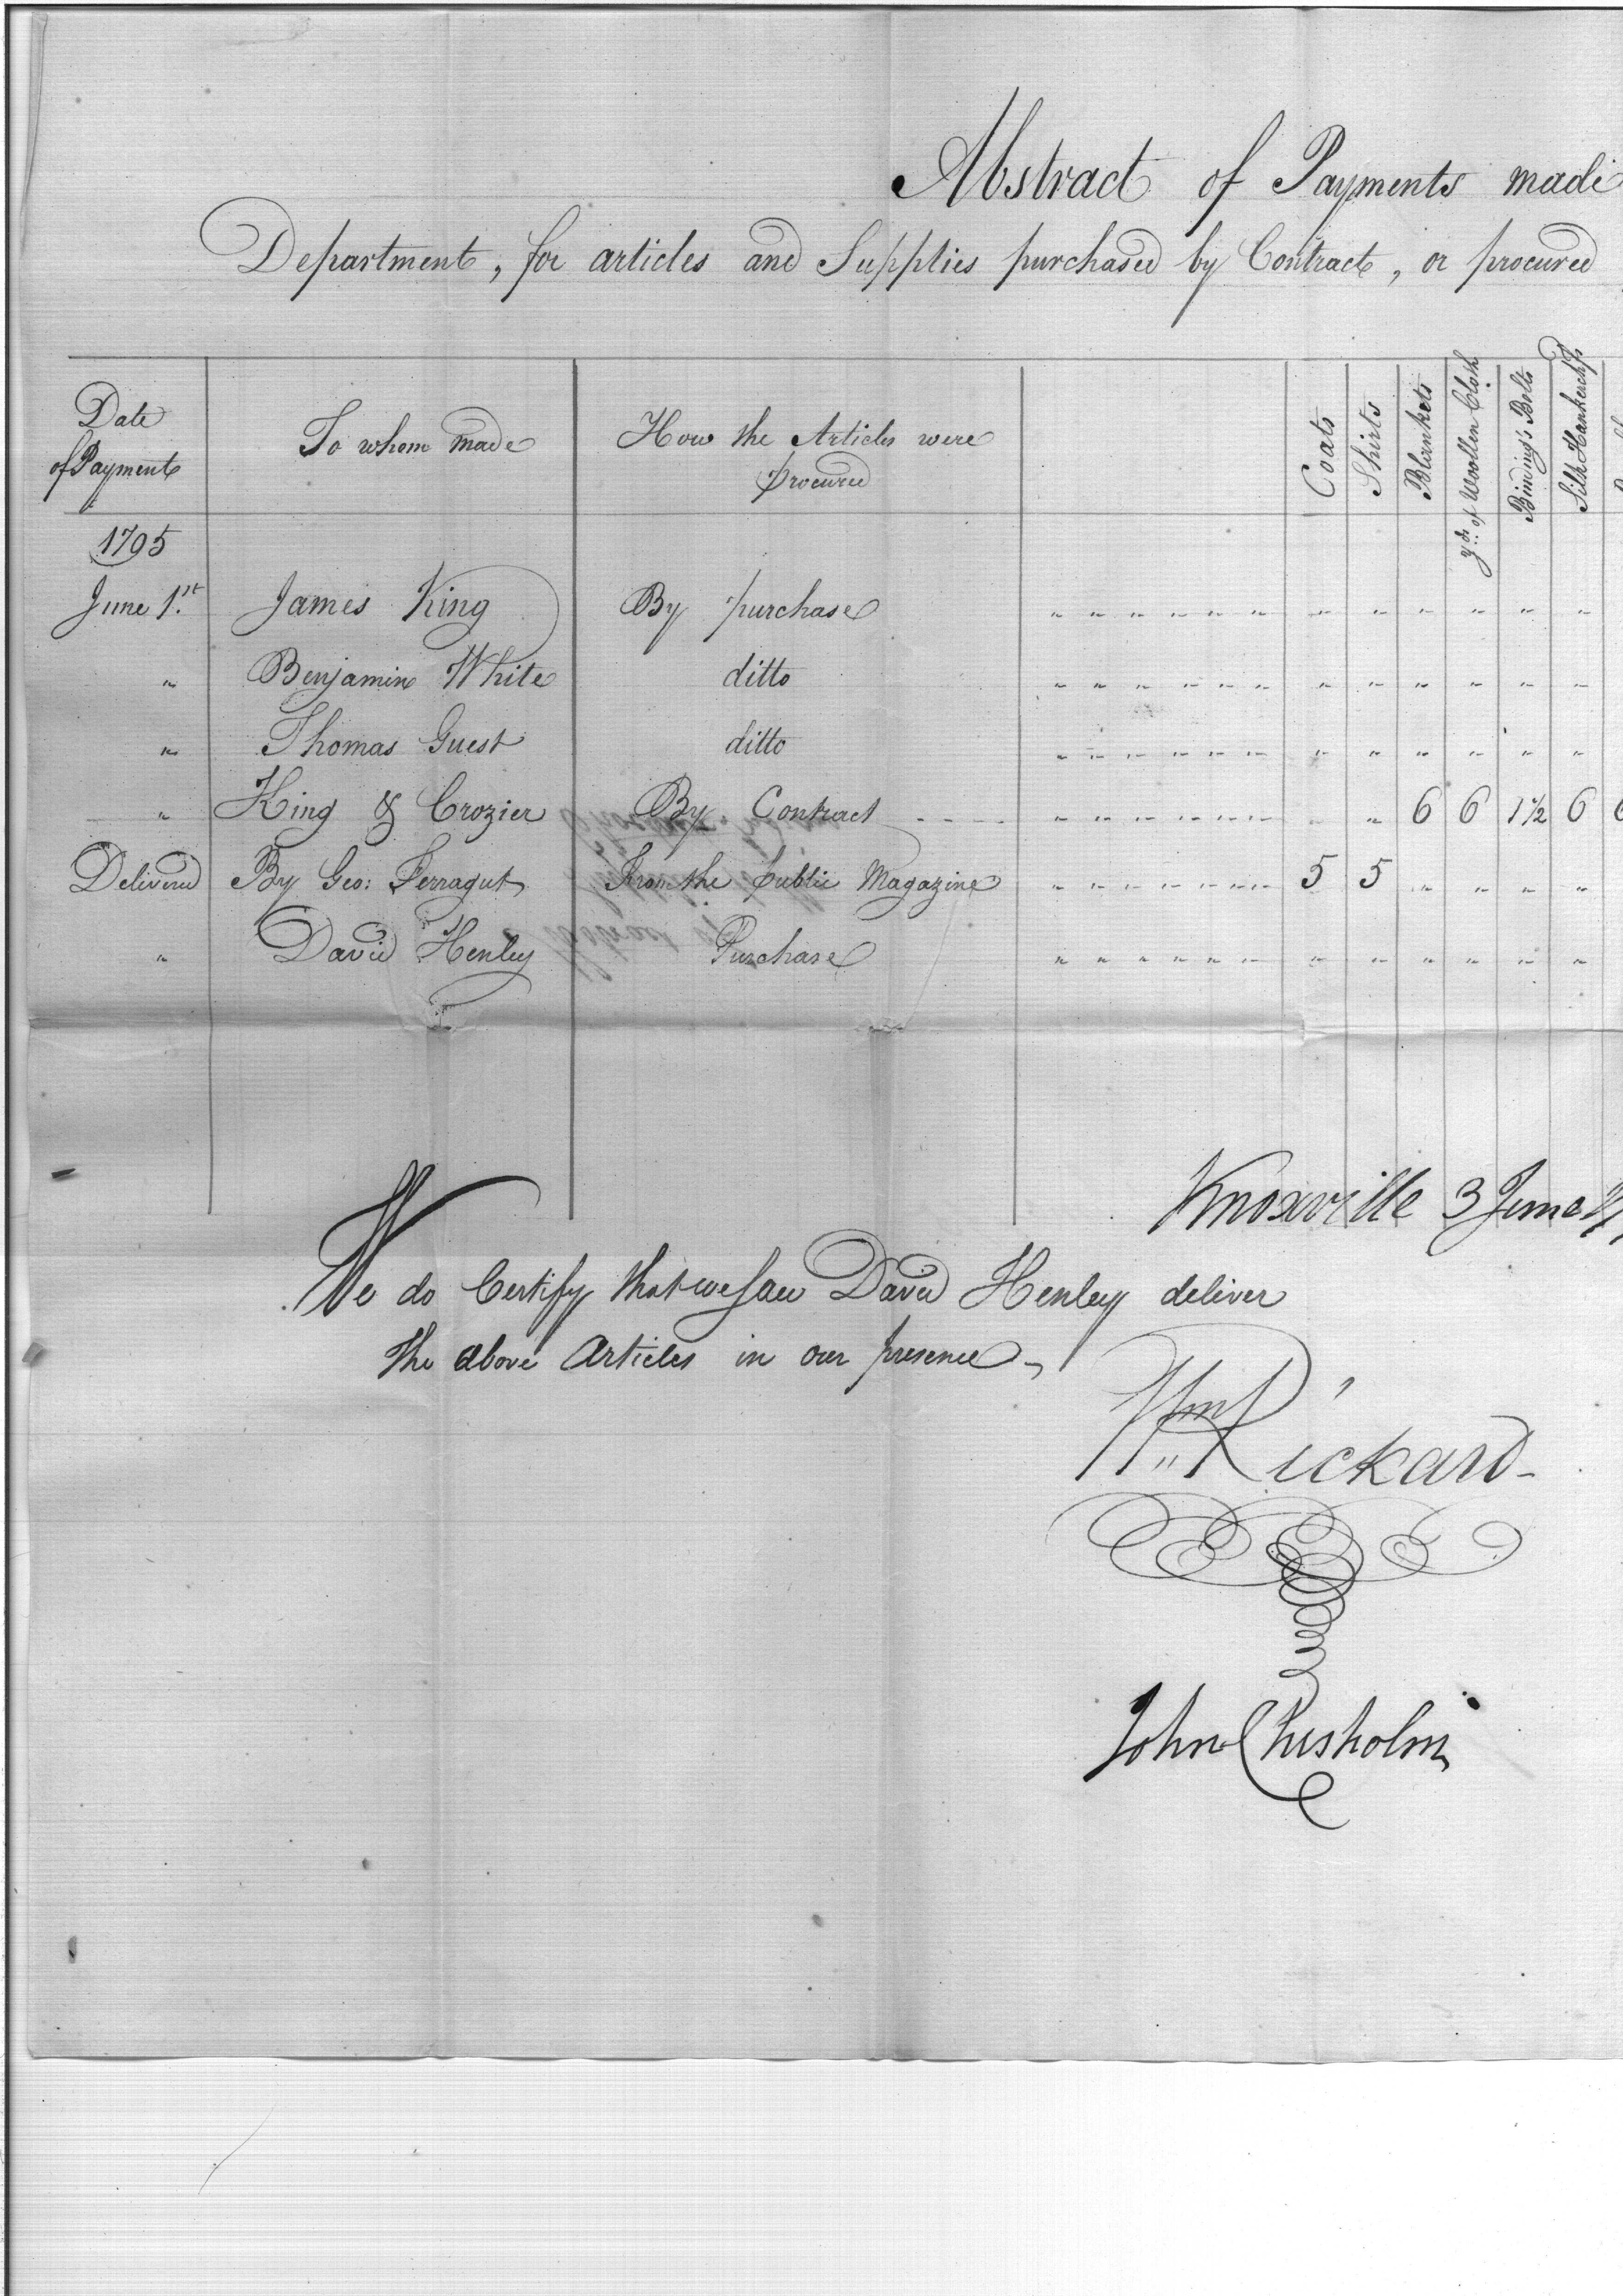 Abstract of Payments made
Department, for articles and Supplies purchased by Contract, or procured
Date of Payment | To whom made | How the Articles were procured | Coats | Shirts | Blankets | yds. of Woollen Cloth | Binding's Belts | Silk Hankerchfs
1795
June 1.st James King By purchase " " " " " " " " " " " "
" Benjamin White ditto " " " " " " " " " " " " "
" Thomas Guest ditto " " " " " " " " " " " "
" King & Crozier By Contract " " " " " " " " 6 6 1 1/2 6
Delivered By Geo: Ferragut From the public Magazine " " " " " " " 5 5 " " " "
" David Henley Purchase " " " " " " " " " " " "
Knoxville 3 June
We do Certify that we saw David Henley deliver
the above Articles in our presence
Wm Rickard
John Chisholm